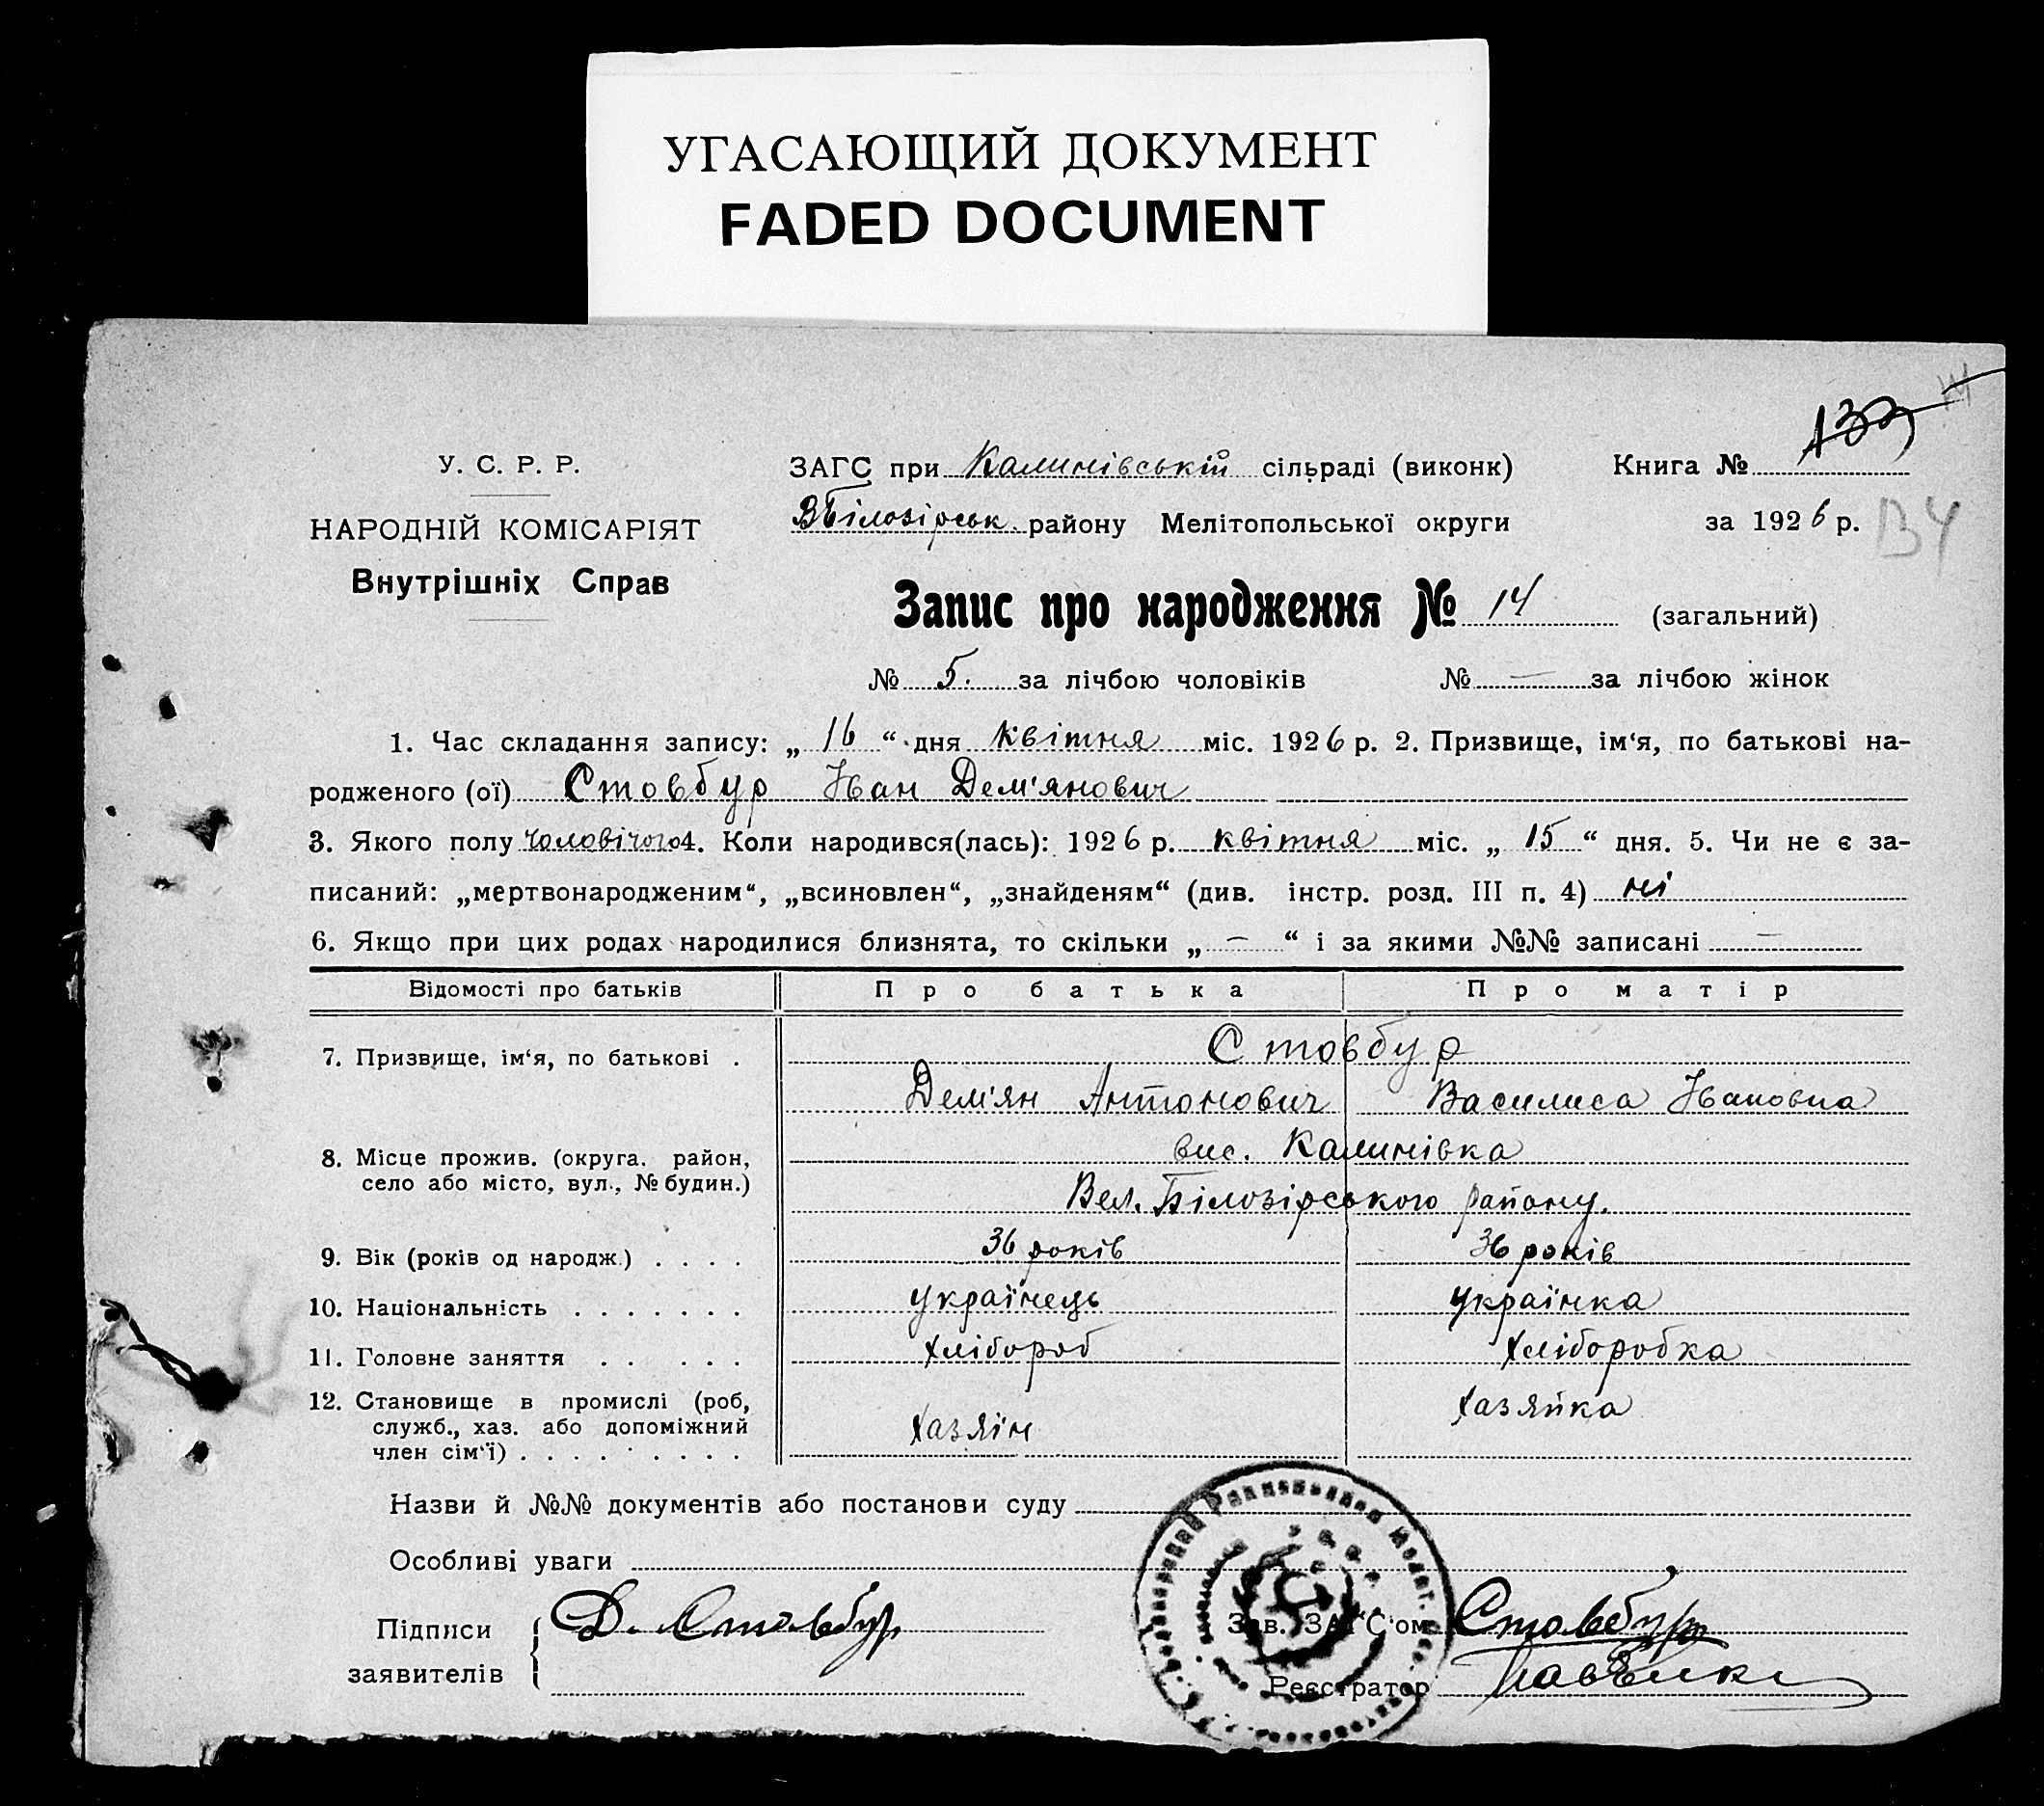 УГАСАЮЩИЙ ДОКУМЕНТ
FADED DOCUMENT
У. С. Р. Р.
НАРОДНІЙ КОМІСАРІЯТ
Внутрішніх Справ
ЗАГС при Калинівській сільраді (виконк)
ВБілозірськ. району Мелітопольської округи
Книга №
за 1926 р.
Запис про народження № 14 (загальний)
№ 5. за лічбою чоловіків № — за лічбою жінок
1. Час складання запису: „ 16 “ дня квітня міс. 1926 р. 2. Призвище, ім‘я, по батькові на-
родженого (ої) Стовбур Іван Дем'янович
3. Якого полу чоловічого 4. Коли народився(лась): 1926 р. квітня міс. „ 15 “ дня. 5. Чи не є за-
писаний: „мертвонародженим“, „всиновлен“, „знайденям“ (див. інстр. розд. III п. 4) ні
6. Якщо при цих родах народилися близнята, то скільки „ — “ і за якими №№ записані —
Відомості про батьків Про батька Про матір
7. Призвище, ім‘я, по батькові . Стовбур
Дем'ян Антонович Василиса Івановна
8. Місце прожив. (округа, район, вис. Калинівка
село або місто, вул., № будин.) Вел. Білозірського району.
9. Вік (років од народж.) . . . . 36 років 36 років
10. Національність . . . . . . . українець українка
11. Головне заняття . . . . . хлібороб хліборобка
12. Становище в промислі (роб,
служб., хаз. або допоміжний
член сім‘ї) . . . . . . . . хазяїн хазяйка
Назви й №№ документів або постанови суду
Особливі уваги
Підписи
заявителів
Д. Стовбур
Зав. ЗАГС‘ом Стовбур
Реєстратор